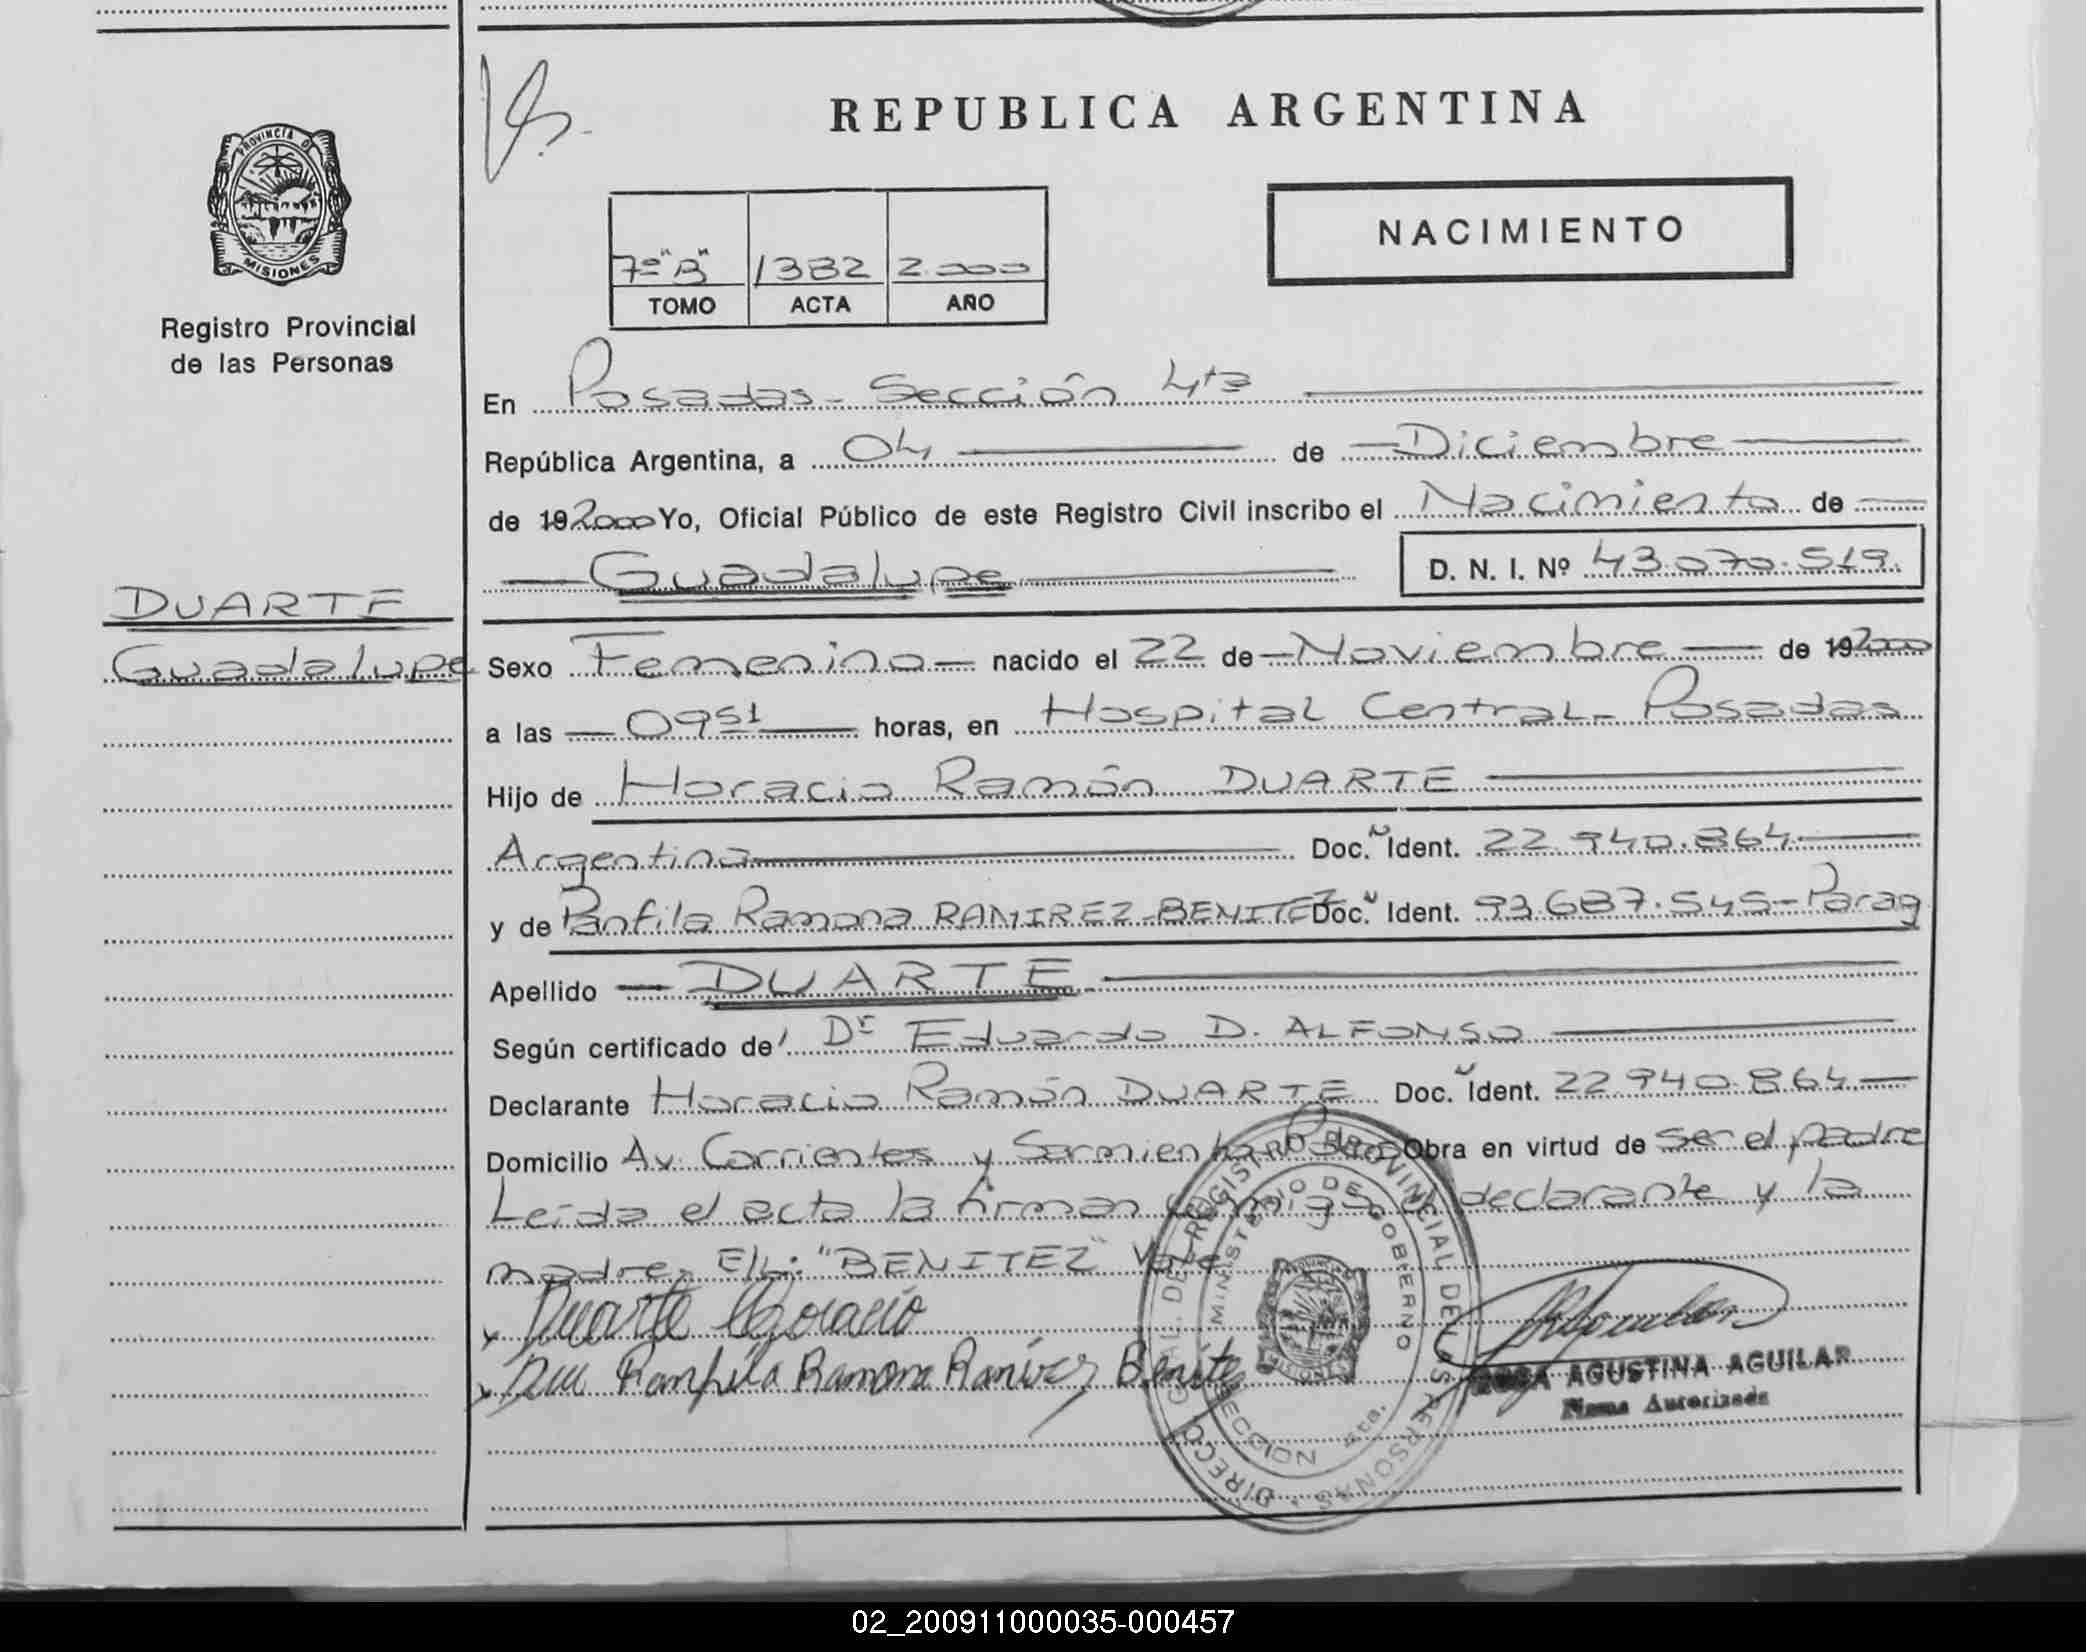 REPUBLICA ARGENTINA
PROVINCIA DE
MISIONES
Registro Provincial
de las Personas
NACIMIENTO
7º "B" 1382 2.000
TOMO ACTA AÑO
En Posadas - Sección 4ta
República Argentina, a 04 de Diciembre
de 19 2000 Yo, Oficial Público de este Registro Civil inscribo el Nacimiento de
Guadalupe D. N. I. Nº 43.070.519.
DUARTE
Guadalupe
Sexo Femenino nacido el 22 de Noviembre de 19 2000
a las 09 51 horas, en Hospital Central - Posadas
Hijo de Horacio Ramón DUARTE
Argentina Doc. N Ident. 22.940.864
y de Panfila Ramona RAMIREZ-BENITEZ Doc. N Ident. 93.687.545 - Parag
Apellido DUARTE
Según certificado de Dr Eduardo D. ALFONSO
Declarante Horacio Ramón DUARTE Doc. Ident. 22.940.864
Domicilio Av. Corrientes y Sarmiento Pdas Obra en virtud de ser el padre
Leída el acta la firman conmigo el declarante y la
madre. E/L: "BENITEZ" Vale
Duarte Horacio
Panfila Ramona Ramirez Benitez
DIRECC. GRAL. DEL REGISTRO PROVINCIAL DE LAS PERSONAS
MINISTERIO DE GOBIERNO
SECCION 4ta.
ROSA AGUSTINA AGUILAR
Firma Autorizada
02_200911000035-000457